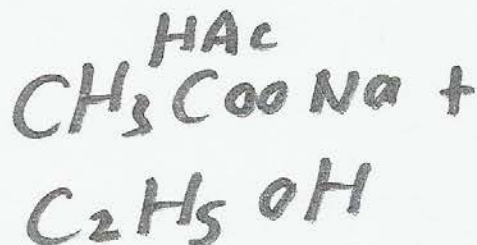 HAc
CH₃COONa +
C₂H₅OH